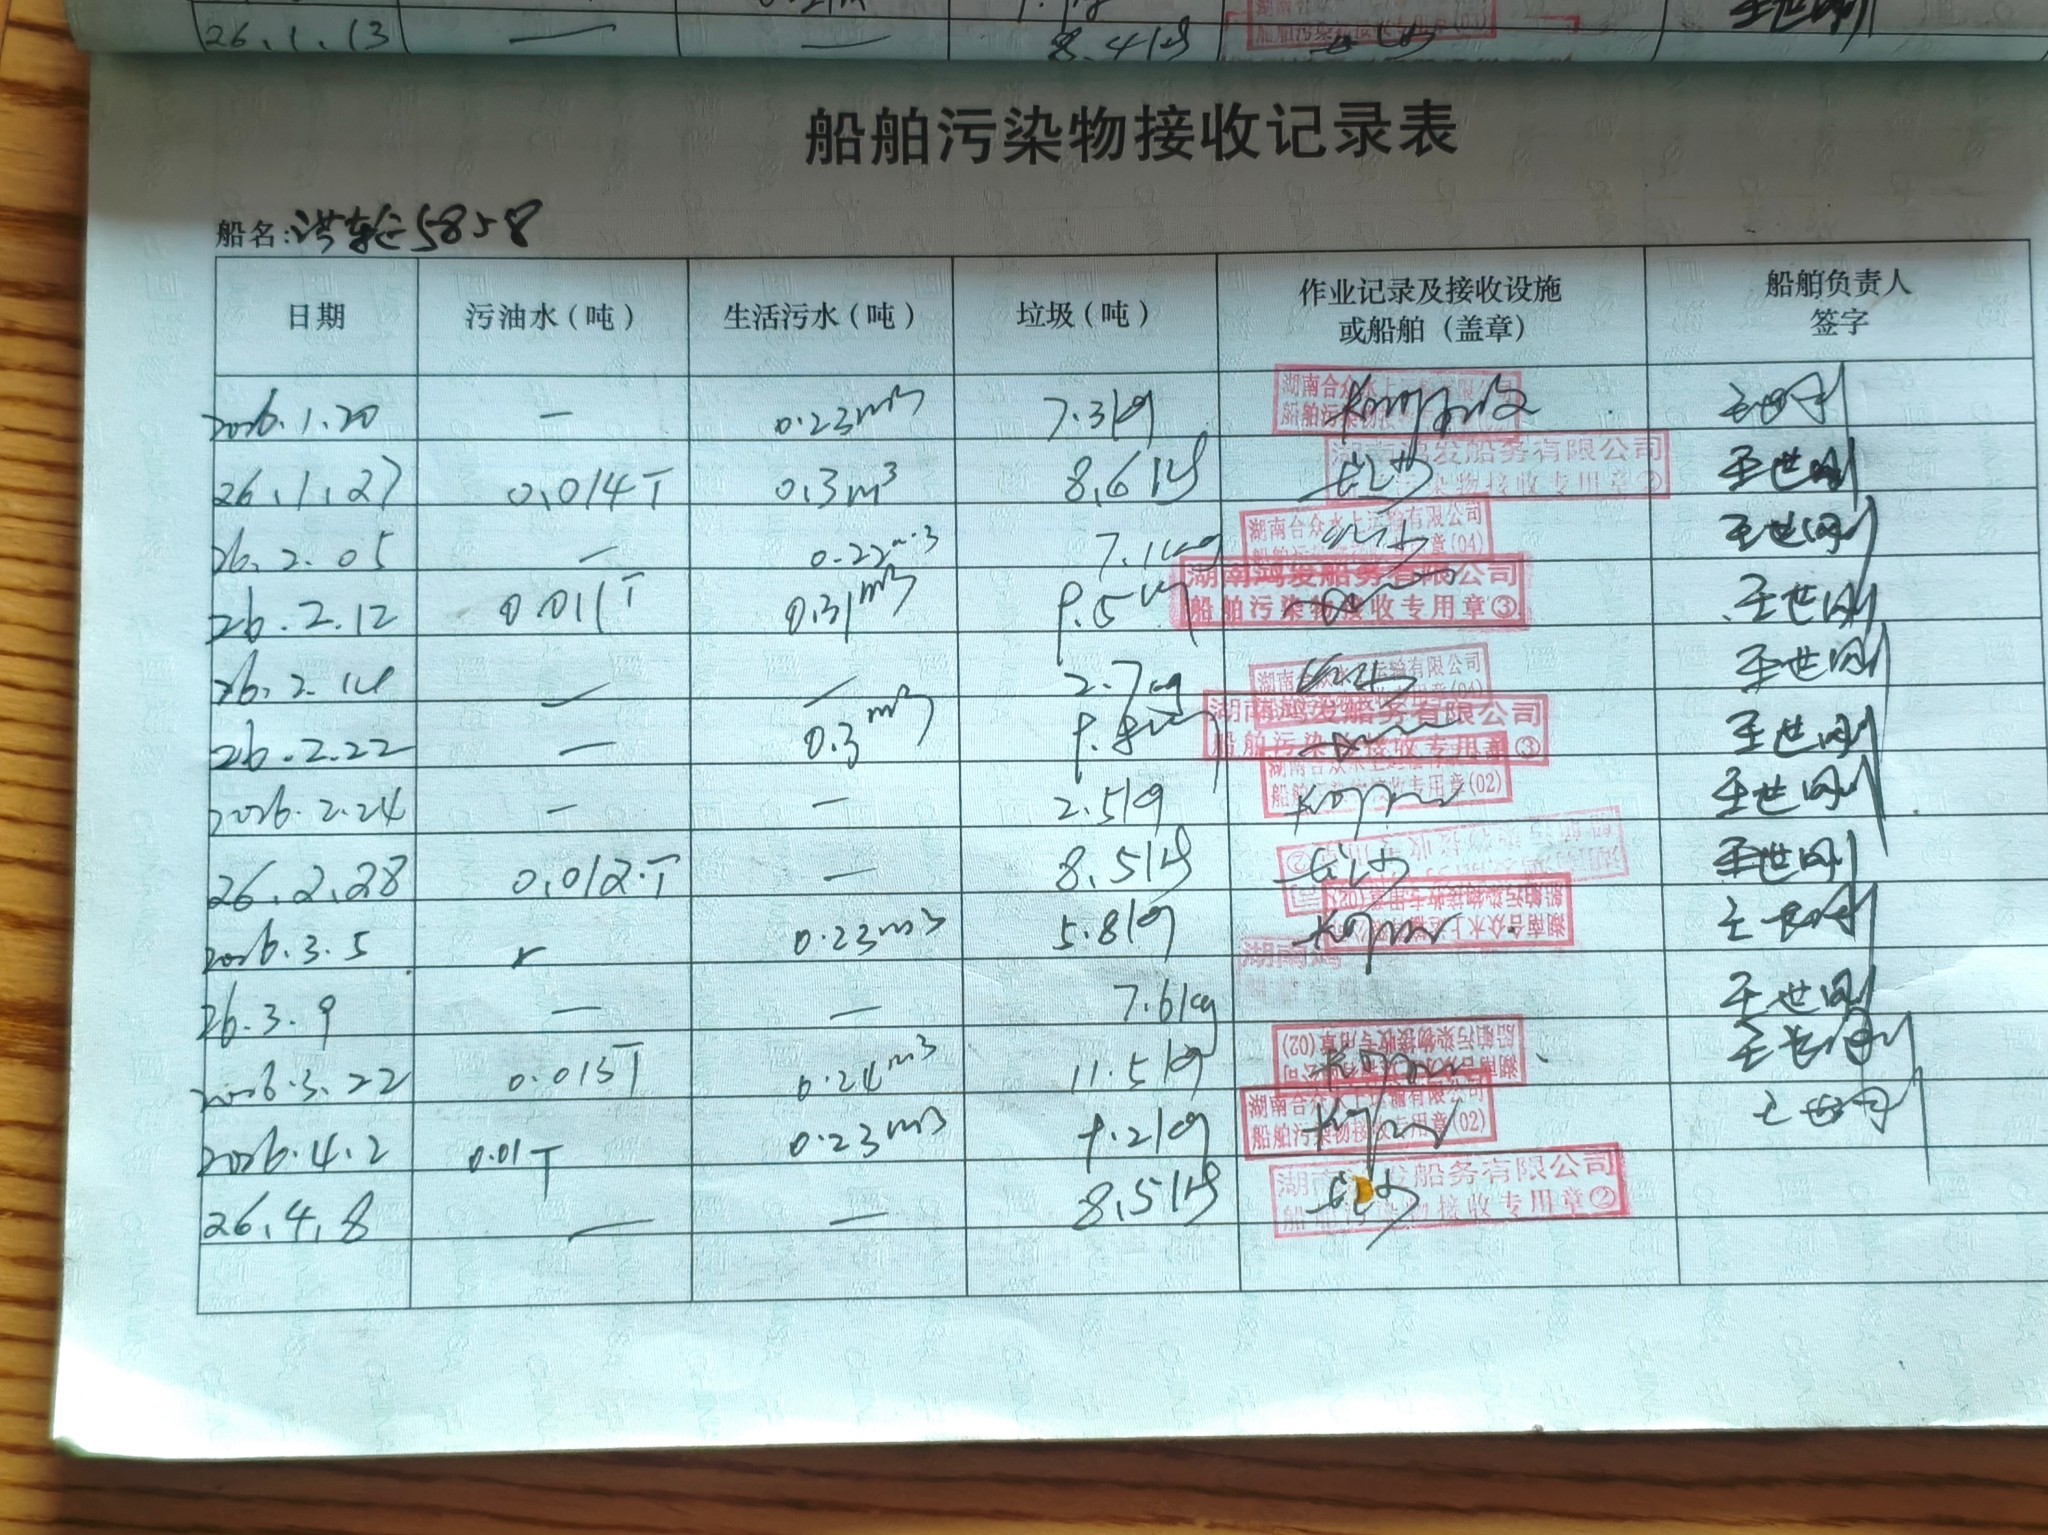 26.1.13 — — 8.4kg
船舶污染物接收记录表
船名:洪运5858
日期 污油水(吨) 生活污水(吨) 垃圾(吨) 作业记录及接收设施或船舶(盖章) 船舶负责人签字
2026.1.20 — 0.23m³ 7.3kg 湖南合众水上运输有限公司
26.1.27 0.014T 0.3m³ 8.6kg 湖南鸿发船务有限公司 船舶污染物接收专用章② 王世刚
26.2.05 — 0.22m³ 7.1kg 湖南合众水上运输有限公司 船舶污染物接收专用章(04) 王世刚
26.2.12 0.011T 0.31m³ 9.5kg 湖南鸿发船务有限公司 船舶污染物接收专用章③ 王世刚
26.2.14 — — 2.7kg 王世刚
26.2.22 — 0.3m³ 9.8kg 湖南鸿发船务有限公司 船舶污染物接收专用章③ 王世刚
2026.2.24 — — 2.5kg 湖南合众水上运输有限公司 船舶污染物接收专用章(02) 王世刚
26.2.28 0.012T — 8.5kg 王世刚
2026.3.5 0.23m³ 5.8kg 湖南合众水上运输有限公司 船舶污染物接收专用章(02)
26.3.9 — — 7.6kg 湖南鸿 王世刚
2026.3.22 0.013T 0.24m³ 11.5kg 船舶污染物接收专用章(02)
2026.4.2 0.01T 0.23m³ 9.2kg 湖南合众水上运输有限公司 船舶污染物接收专用章(02)
26.4.8 — — 8.5kg 湖南鸿发船务有限公司 船舶污染物接收专用章②